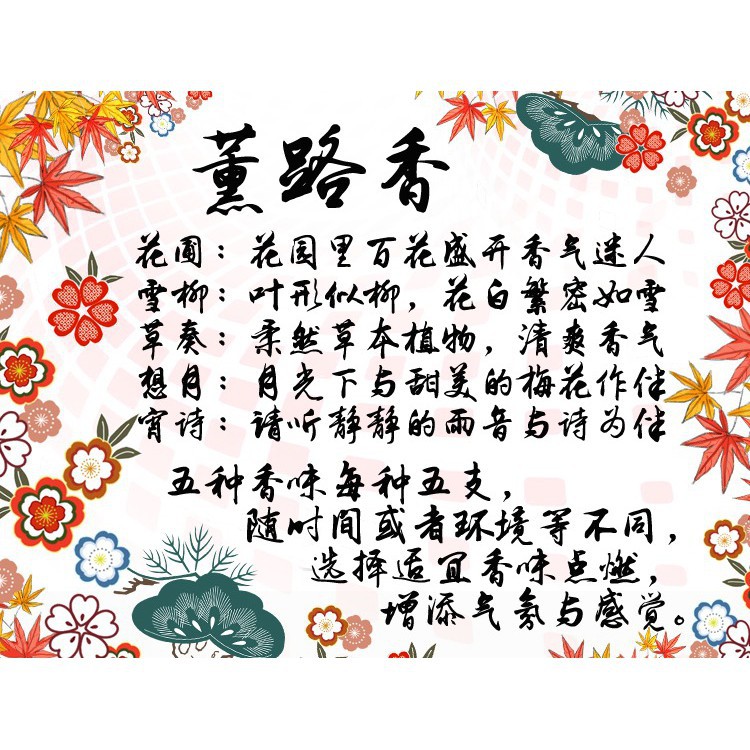 薰路香
花圃：花园里百花盛开香气迷人
雪柳：叶形似柳，花白繁密如雪
草奏：柔然草本植物，清爽香气
想月：月光下与甜美的梅花作伴
宵诗：请听静静的雨音与诗为伴
五种香味每种五支，
随时间或者环境等不同，
选择适宜香味点燃，
增添气氛与感觉。